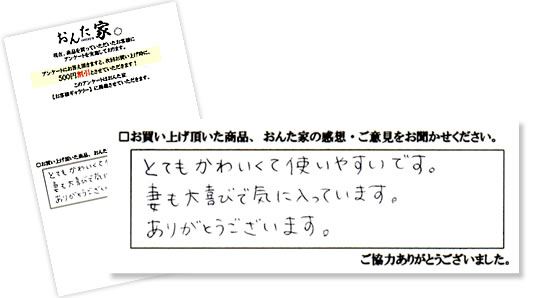 おんた家。
現在、商品を買っていただいたお客様に
アンケートを実施しております。
アンケートにお答え頂きますと、次回お買い上げ時に、
500円割引とさせていただきます！
このアンケートはおんた家
【お客様ギャラリー】に掲載させていただきます。
□お買い上げ頂いた商品、お
とてもかわいくて使
妻も大喜びで気に
ありがとうござい
□お買い上げ頂いた商品、おんた家の感想・ご意見をお聞かせください。
とてもかわいくて使いやすいです。
妻も大喜びで気に入っています。
ありがとうございます。
ご協力ありがとうございました。